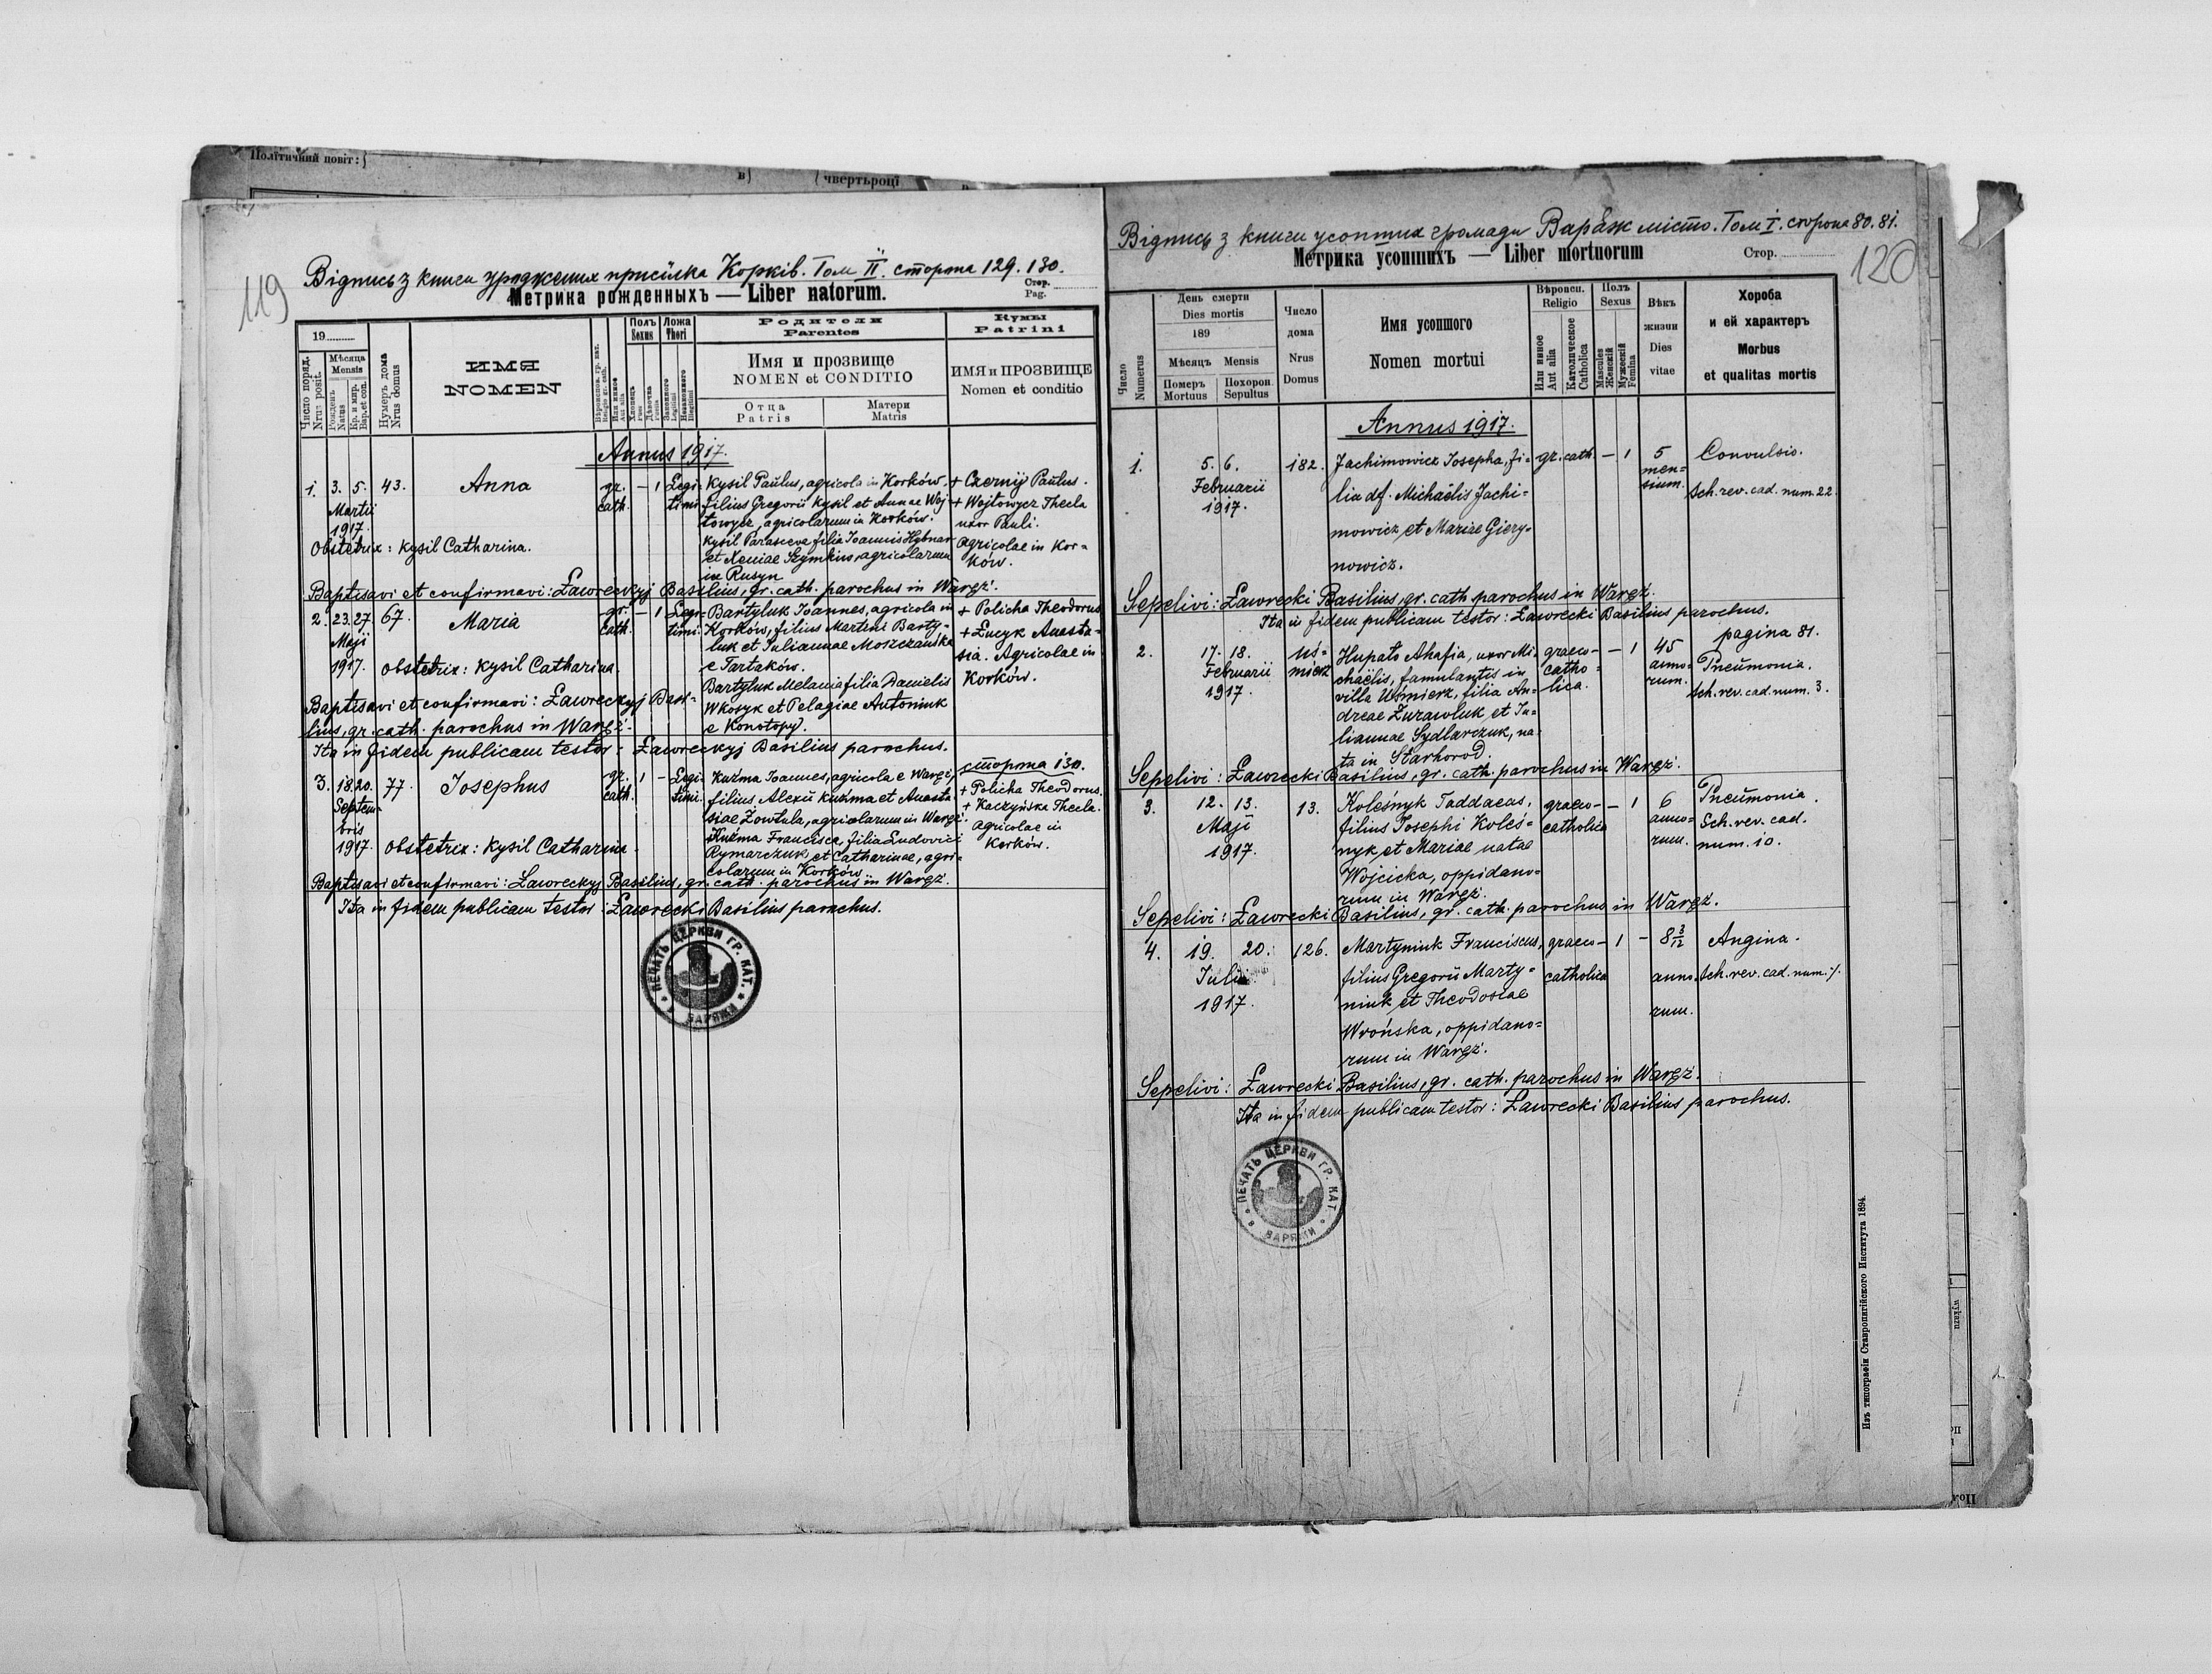 Політичний повіт:
в) чвертьроції
119
Відпись з книги уроджених присілка Корків. Том II. сторона 129. 130.
Метрика рожденныхъ — Liber natorum.
Стор.
Pag.
19
Число поряд.
Nrus posit.
Мѣсяца
Mensis
Рожденъ
Natus
Кр. и мир.
Bap. et con.
Нумеръ дома
Nrus domus
ИМЯ
NOMEN
Полъ
Sexus
Ложа
Thori
Родители
Parentes
Имя и прозвище
NOMEN et CONDITIO
Отца
Patris
Матери
Matris
Кумы
Patrini
ИМЯ и ПРОЗВИЩЕ
Nomen et conditio
Annus 1917.
1. 3. 5. 43. Anna gr. cath. — 1 Legitimi
Martii
1917.
Obstetrix: Kysil Catharina.
Kysil Paulus, agricola in Korków,
filius Gregorii Kysil et Annae Woj
towycz, agricolarum in Korków.
Kysil Parasceva filia Ioannis Hybnar
et Xeniae Szymkiw, agricolarum
in Rusyn
+ Czernij Paulus.
+ Wojtowycz Thecla
uxor Pauli.
Agricolae in Kor=
ków.
Baptisavi et confirmavi: Ławreckyj Basilius, gr. cath. parochus in Waręż.
2. 23. 27. 67. Maria gr. cath. — 1 Legitimi
Maji
1917. Obstetrix: Kysil Catharina.
Bartyluk Ioannes, agricola in
Korków, filius Martini Barty=
luk et Iuliannae Moszczańska
e Tartaków.
Bartyluk Melania filia Danielis
Wkosyk et Pelagiae Antoniuk
e Konotopy.
+ Policha Theodorus
+ Łucyk Anasta=
sia. Agricolae in
Korków.
Baptisavi et confirmavi: Ławreckyj Basi=
lius, gr. cath. parochus in Waręż.
Ita in fidem publicam testor: Ławreckyj Basilius parochus.
сторона 130.
3. 18. 20. 77. Iosephus gr. cath. 1 — Legitimi.
Septem=
bris
1917. Obstetrix: Kysil Catharina.
Kuźma Ioannes, agricola e Waręż,
filius Alexii Kuźma et Anasta
siae Żowtula, agricolarum in Waręż.
Kuźma Francisca, filia Ludovici
Rymarczuk et Catharinae, agri=
colarum in Korków.
+ Policha Theodorus.
+ Kaczyńska Thecla.
Agricolae in
Korków.
Baptisavi et confirmavi: Ławreckyj Basilius, gr. cath. parochus in Waręż.
Ita in fidem publicam testor: Ławrecki Basilius parochus.
ПЕЧАТЬ ЦЕРКВИ ГР. КАТ. ВАРЯЖИ
Відпись з книги усопших громади Варяж місто. Том I. сторона 80. 81.
120
Метрика усопшихъ — Liber mortuorum
Стор.
Число
Numerus
День смерти
Dies mortis
189
Мѣсяцъ Mensis
Померъ
Mortuus
Похорон.
Sepultus
Число
дома
Nrus
Domus
Имя усопшого
Nomen mortui
Вѣроисп.
Religio
Или иное
Aut alia
Католическое
Catholica
Полъ
Sexus
Masculus
Женскій
Мужескій
Femina
Вѣкъ
жизни
Dies
vitae
Хороба
и ей характеръ
Morbus
et qualitas mortis
Annus 1917.
1. 5. 6. 182. Jachimowicz Iosepha, fi= gr. cath. — 1 5 Convulsio.
Februarii lia df. Michaëlis Jachi= men=
sium. Sch. rev. cad. num. 22.
1917. mowicz et Mariae Giery=
nowicz.
Sepelivi: Ławrecki Basilius, gr. cath. parochus in Waręż.
Ita in fidem publicam testor: Ławrecki Basilius parochus.
pagina 81.
2. 17. 18. Uś= Hupało Ahafia, uxor Mi= graeco= — 1 45 Pneumonia.
Februarii mierz chaëlis, famulantis in catho= anno=
1917. villa Uśmierz, filia An= lica. rum. Sch. rev. cad. num. 3.
dreae Żurawluk et Iu=
liannae Sydlarczuk, na=
ta in Starhorod.
Sepelivi: Ławrecki Basilius, gr. cath. parochus in Waręż.
3. 12. 13. 13. Koleśnyk Taddaeus, graeco= — 1 6 Pneumonia.
Maji filius Iosephi Koleś= catholica anno= Sch. rev. cad.
1917. nyk et Mariae natae rum. num. 10.
Wojcicka, oppidano=
rum in Waręż.
Sepelivi: Ławrecki Basilius, gr. cath. parochus in Waręż.
4. 19. 20. 126. Martyniuk Franciscus, graeco= 1 — 8 3/12 Angina.
Iulii filius Gregorii Marty= catholica anno= Sch. rev. cad. num. ·/.
1917. niuk et Theodosiae rum.
Wrońska, oppidano=
rum in Waręż.
Sepelivi: Ławrecki Basilius, gr. cath. parochus in Waręż.
Ita in fidem publicam testor: Ławrecki Basilius parochus.
ПЕЧАТЬ ЦЕРКВИ ГР. КАТ. ВАРЯЖИ
Изъ типографіи Ставропигійского Института 1894.